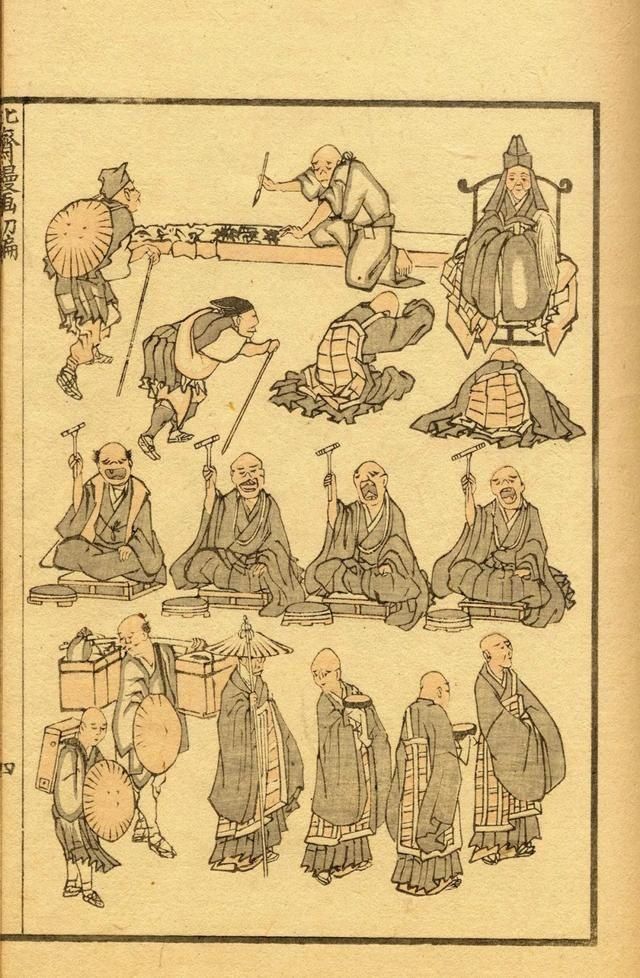 北齋漫画初編
四